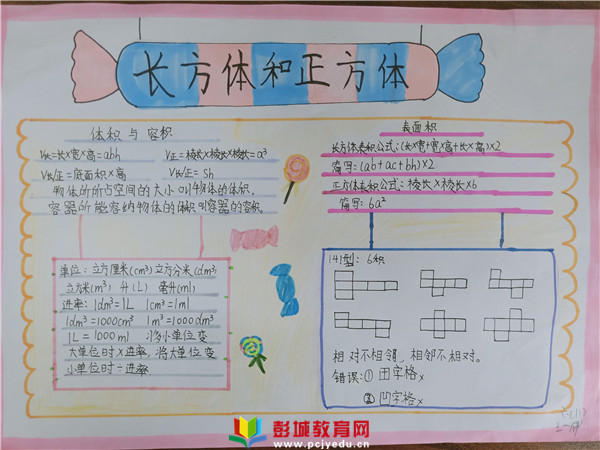 长方体和正方体
体积与容积
V长=长×宽×高=abh V正=棱长×棱长×棱长=a³
V长/正=底面积×高 V长/正=Sh
物体所占空间的大小叫物体的体积,
容器所能容纳物体的体积叫容器的容积.
单位:立方厘米(cm³)立方分米(dm³)
立方米(m³) 升(L) 毫升(ml)
进率:1dm³=1L 1cm³=1ml
1dm³=1000cm³ 1m³=1000dm³
1L=1000ml 将小单位变
大单位时×进率,将大单位变
小单位时÷进率
表面积
长方体表积公式:(长×宽+宽×高+长×高)×2
简写:(ab+ac+bh)×2
正方体表积公式:棱长×棱长×6
简写:6a²
141型:6积
相对不相领,相邻不相对。
错误:①田字格×
②凹字格×
彭城教育网
www.pcjyedu.cn